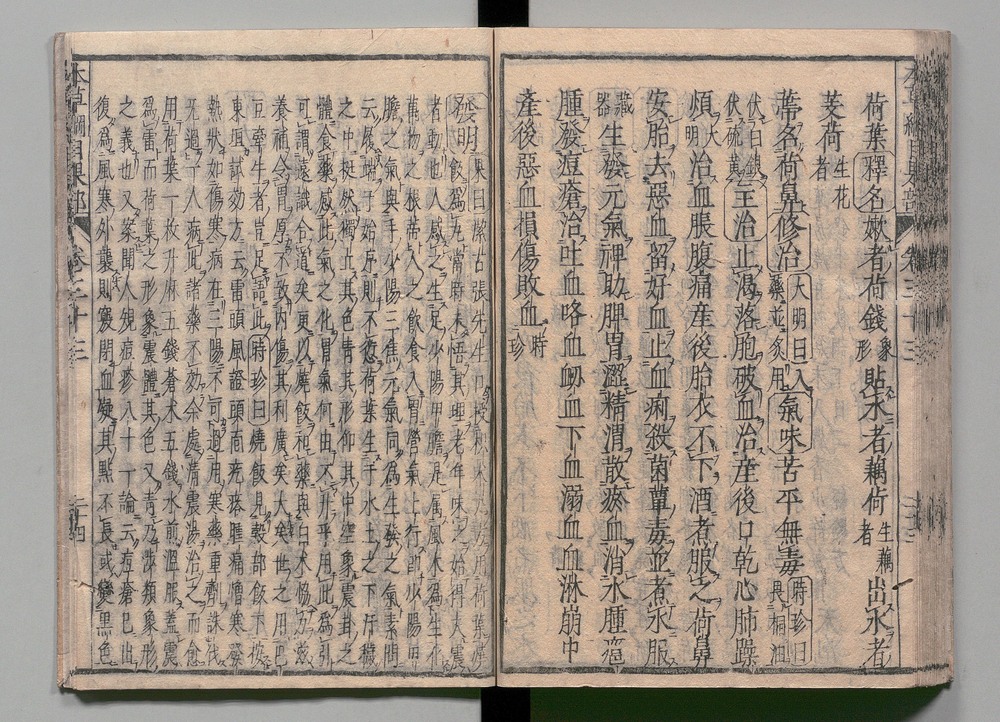 荷葉釋名嫩者荷錢象形貼水者藕荷生藕者出水者
芰荷生花者
蒂名荷鼻修治大明曰入藥並炙用氣味苦平無毒時珍曰畏桐油
伏白銀伏硫黃主治止渴落胞破血治産後口乾心肺躁
煩大明治血脹腹痛産後胎衣不下酒者服之荷鼻
安胎去惡血留好血止血痢殺菌蕈毒並煮水服
藏器生發元氣裨助脾胃澀精濇散瘀血消水腫癰
腫發痘瘡治吐血咯血衄血下血溺血血淋崩中
産後惡血損傷敗血時珍
發明杲曰潔古張先生口授枳朮丸方用荷葉燒
飯爲丸當時未悟其理老年味之始得夫震
者動也人感之生足少陽甲膽是属風木爲生化
萬物之根蒂人之飲食入胃營氣上行即少陽甲
膽之氣與手少陽三焦元氣同爲生發之氣素問
云履端于始序則不愆荷葉生于水土之下汙穢
之中挺然獨立其色青其形仰其中空象震卦之
體食藥感此氣之化胃氣何由不升乎用此爲引
可謂遠識合道矣更以燒飯和藥與白朮協力滋
養補令胃厚不致内傷其利廣矣大矣世之用巴
豆牽牛者豈足語此時珍曰燒飯見穀部飯下按
東垣試効方云雷頭風證頭面疙瘩腫痛憎寒發
熱狀如傷寒病在三陽不可過用寒藥重劑誅伐
无過一人病此諸藥不効余處清震湯治之
用荷葉一枚升麻五錢蒼朮五錢水煎温服蓋震
爲雷而荷葉之形象震體其色又青乃涉類象形
之義也又案聞人規痘疹八十一論云痘瘡已出
復爲風寒外襲則竅閉血凝其點不長或變黑色
本草綱目果部 卷三十三